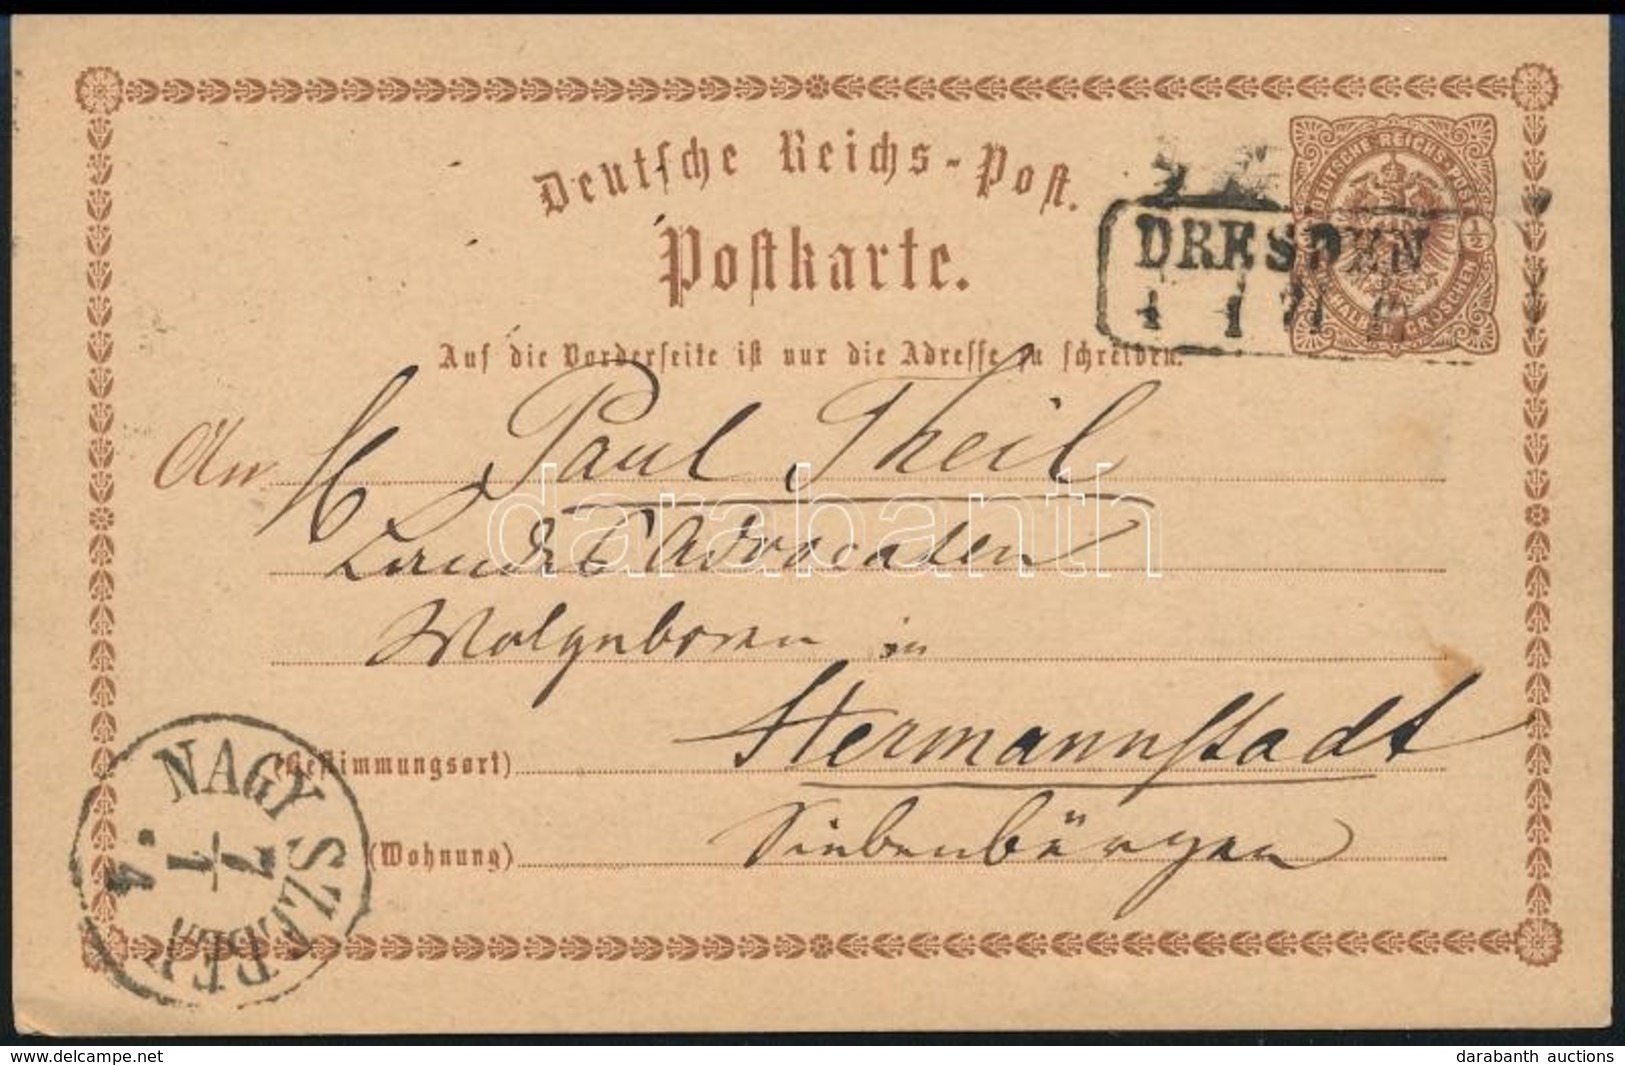 Deutsche Reichs-Post.
Postkarte.
DEUTSCHE REICHS-POST
1/2
GROSCHEN
DRESDEN
Auf die Vorderseite ist nur die Adresse zu schreiben.
An H Paul Theil
Landes Advocaten
Wolgeboren in
(Bestimmungsort) Hermannstadt
(Wohnung) Siebenbürgen
NAGY SZEBEN
7
1
darabanth
darabanth auctions